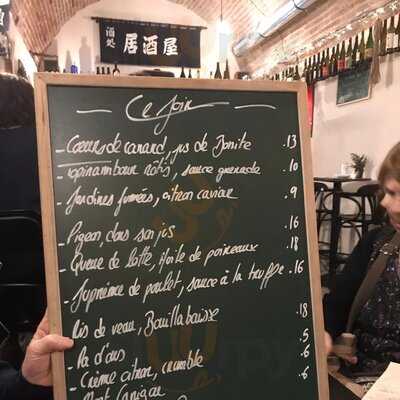 酒処 居酒屋
Ce Soir
- Cœurs de canard, jus de Bonite .13
- Topinambour rôtis, sauce grenade .10
- Sardines fumées, citron caviar .9
- Pigeon, dans son jus .16
- Queue de lotte, étoile de poireaux .18
- Suprême de poulet, sauce à la truffe .16
- Ris de veau, Bouillabaisse .18
- Pa d'ous .5
- Crème citron, crumble .6
- Mont Canigou .6